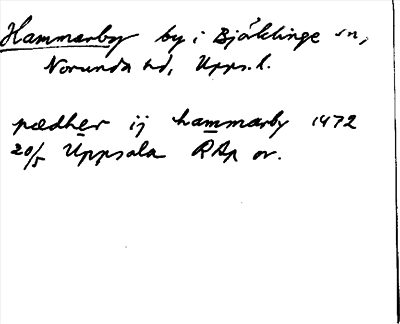 Hammarby by i Björklinge sn,
Norunda hd, Upps. l.
pædher ij hammarby 1472
20/5 Uppsala RAp or.